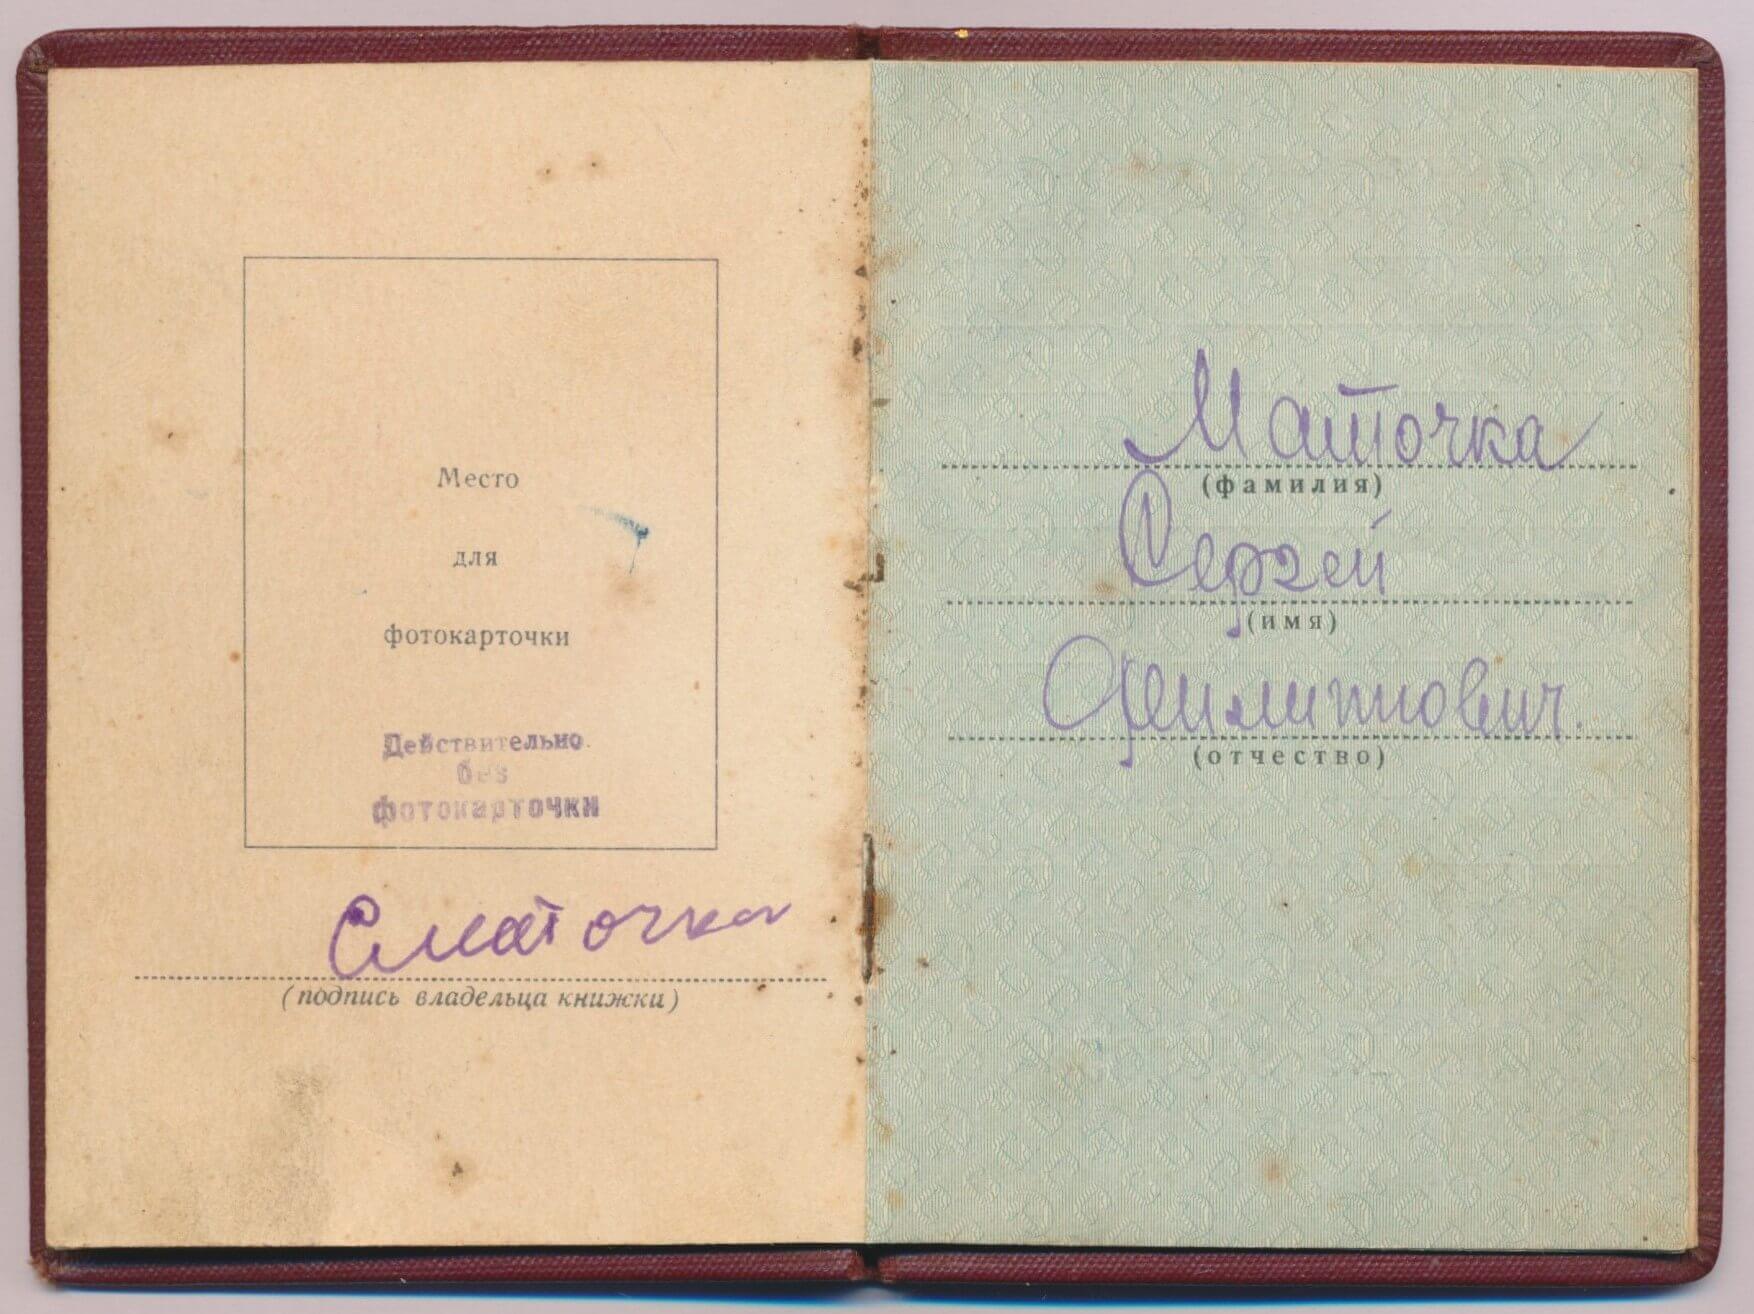 Место
для
фотокарточки
Действительно
без
фотокарточки
СМаточка
(подпись владельца книжки)
Маточка
(фамилия)
Сергей
(имя)
Филиппович.
(отчество)